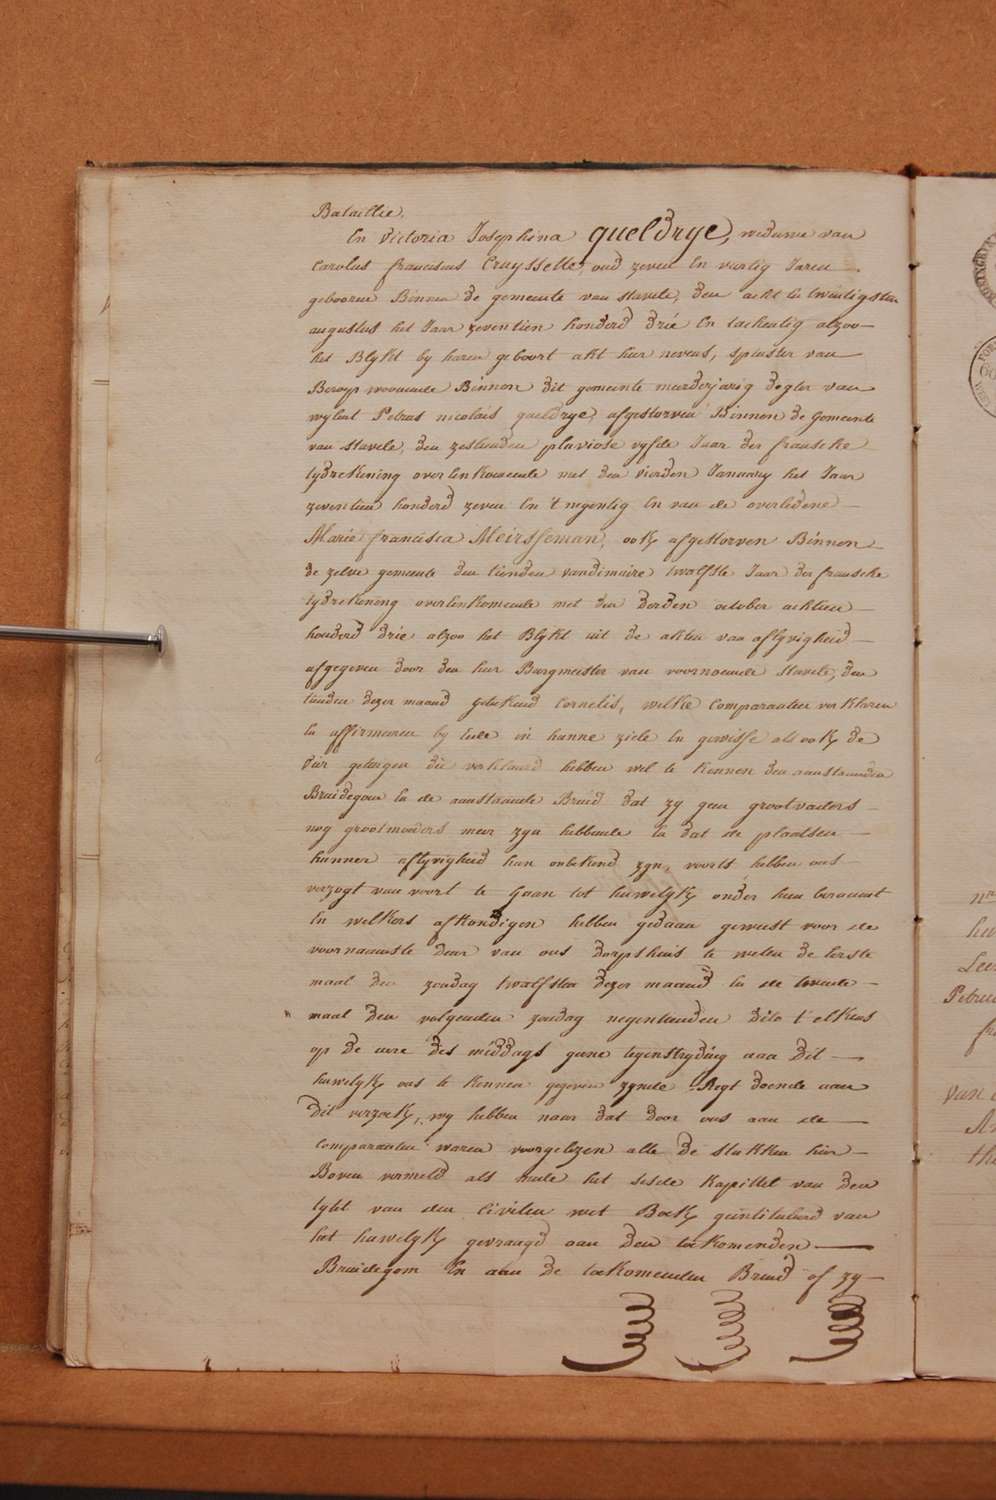 Bataillie,
En Victoria Josephina queldrye, weduwe van
Carolus franciscus Cruysselle, oud zeven En vartig Jaren
gebooren Binnen de gemeente van stavele, den acht en twintigsten
augustus het Jaar zeventien honderd drie En tachentig alzoo
het Blykt by haren geboort akt hier nevens, spinster van
Beroep woonende Binnen dit gemeente meerderjarig dogter van
wylent Petrus nicolais queldrye, afgestorven Binnen de gemeente
van stavele, den zestienden pluviose vyfde Jaar der fransche
tydrekening overeenkomende met den vierden January het Jaar
zeventien honderd zeven En 't negentig En van de overledene
Marie francisca Meirsseman, ook afgestorven Binnen
de zelve gemeente den tienden vandimaire twalfste Jaar der fransche
tydrekening overeenkomende met den derden october achtien
honderd drie alzoo het Blykt uit de akten van aflyvigheid
afgegeven door den heer Burgmeester van voornoemde stavele, den
tienden dezer maand getekend Cornelis, welke Comparanten verklaren
En affirmeren by Eede in hunne ziele En gewisse als ook de
vier getuygen die verklaard hebben wel te kennen den aanstaanden
Bruidegom En de aanstaande Bruid dat zy geen grootvaders
nog grootmoeders meer zyn hebbende En dat de plaatsen
hunner aflyvigheid hun onbekend zyn, voorts hebben ons
verzogt van voort te gaan tot huwelyk onder hun beraamt
En welkers afkondigen hebben gedaan geweest voor de
voornaamste deur van ons dorpshuis te weten de Eerste
maal den zondag twalfsten dezer maand En de tweede
maal den volgenden zondag negentienden dito t'elkens
op de uere des middags geene tegenstryding aan dit
huwelyk ons te kennen gegeven zynde. Regt doende aan
dit verzoek, wy hebben naer dat door ons aan de
comparanten waren voorgelezen alle de stukken hier
Boven vermeld als mede het sesde Kapittel van den
tytel van den Civilen wet Boek geintituleerd van
het huwelyk gevraagd aan den toekomenden
Bruidegom En aan de toekomenden Bruid of zy